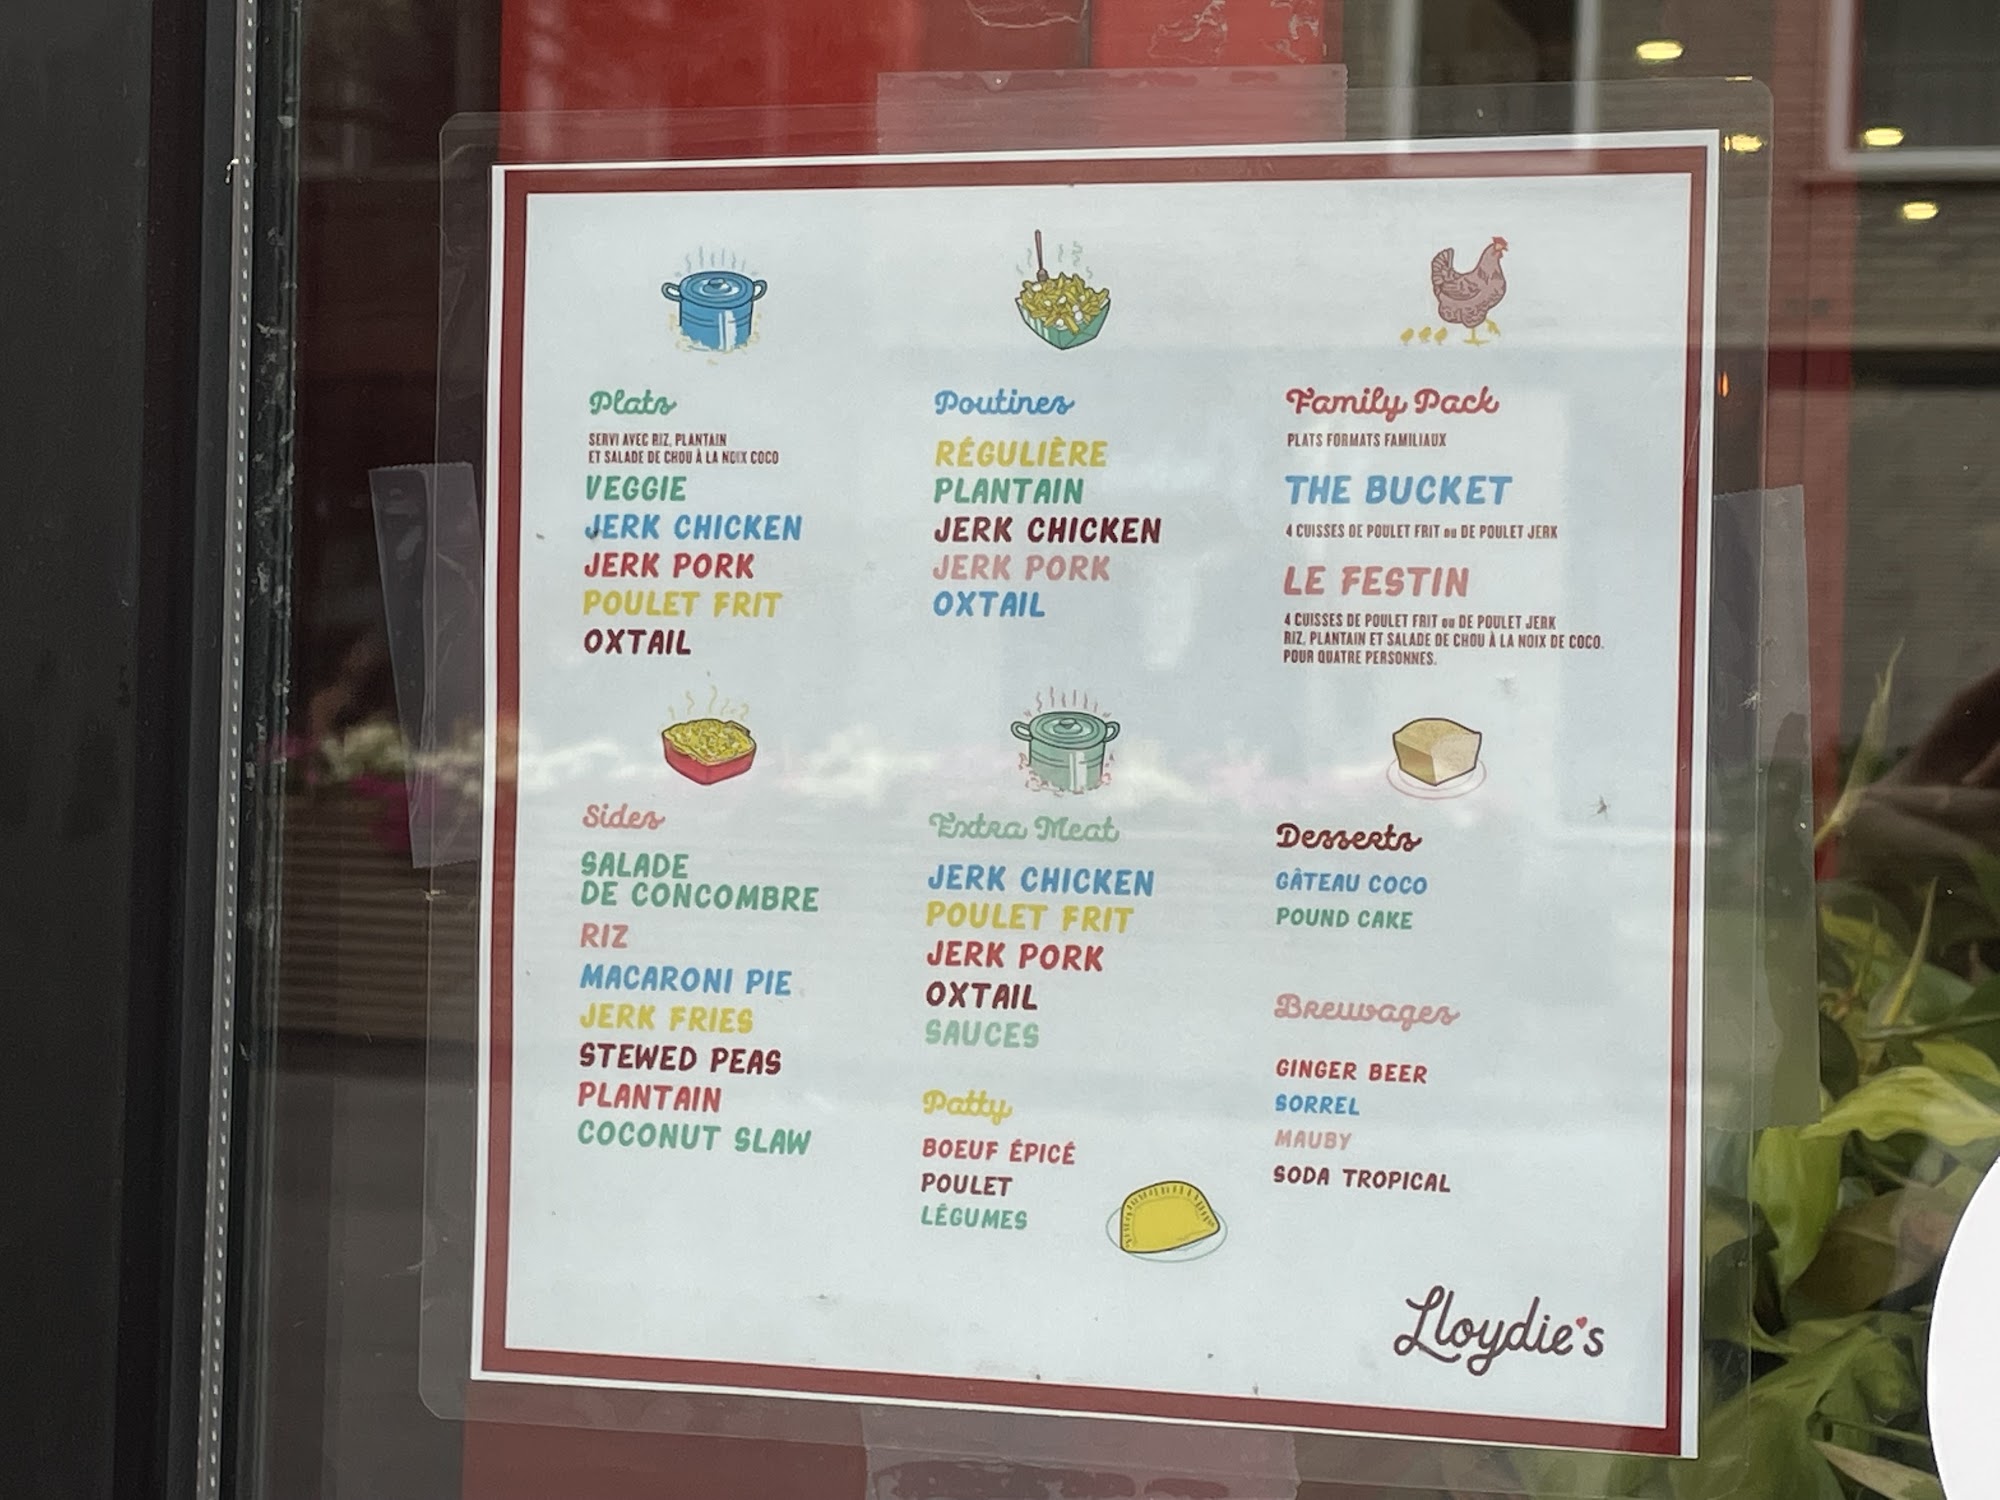 Plats
SERVI AVEC RIZ, PLANTAIN
ET SALADE DE CHOU À LA NOIX COCO
VEGGIE
JERK CHICKEN
JERK PORK
POULET FRIT
OXTAIL
Poutines
RÉGULIÈRE
PLANTAIN
JERK CHICKEN
JERK PORK
OXTAIL
Family Pack
PLATS FORMATS FAMILIAUX
THE BUCKET
4 CUISSES DE POULET FRIT ou DE POULET JERK
LE FESTIN
4 CUISSES DE POULET FRIT ou DE POULET JERK
RIZ, PLANTAIN ET SALADE DE CHOU À LA NOIX DE COCO.
POUR QUATRE PERSONNES.
Sides
SALADE
DE CONCOMBRE
RIZ
MACARONI PIE
JERK FRIES
STEWED PEAS
PLANTAIN
COCONUT SLAW
Extra Meat
JERK CHICKEN
POULET FRIT
JERK PORK
OXTAIL
SAUCES
Patty
BOEUF ÉPICÉ
POULET
LÉGUMES
Desserts
GÂTEAU COCO
POUND CAKE
Breuvages
GINGER BEER
SORREL
MAUBY
SODA TROPICAL
Lloydie's